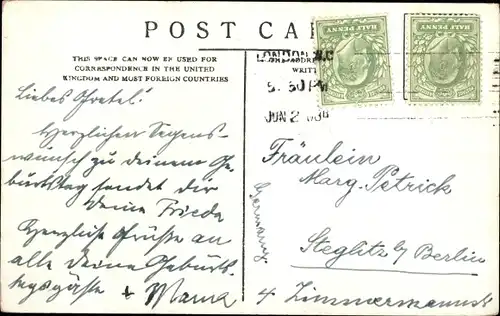 POST CA
THIS SPACE CAN NOW BE USED FOR
CORRESPONDENCE IN THE UNITED
KINGDOM AND MOST FOREIGN COUNTRIES
Liebes Gretel!
Herzlichen Segens-
wunsch zu deinem Ge-
burtstag sendet dir
deine Frieda
Herzliche Grüsse an
alle deine Geburts-
tagsgäste + Mama
HALF PENNY
HALF PENNY
LONDON
5. 30 PM
JUN 2
WRITT
Fräulein
Marg. Petrick
Steglitz b/ Berlin
4 Zimmermannst
Germany